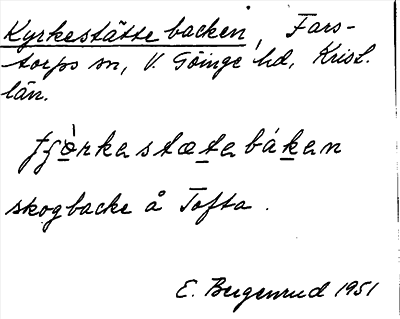 Kyrkestätte backen, Fars-
torps sn, V. Göinge hd, Krist.
län.
fgòrkastætabákan
skogbacke å Tofta.
E. Bergenrud 1951